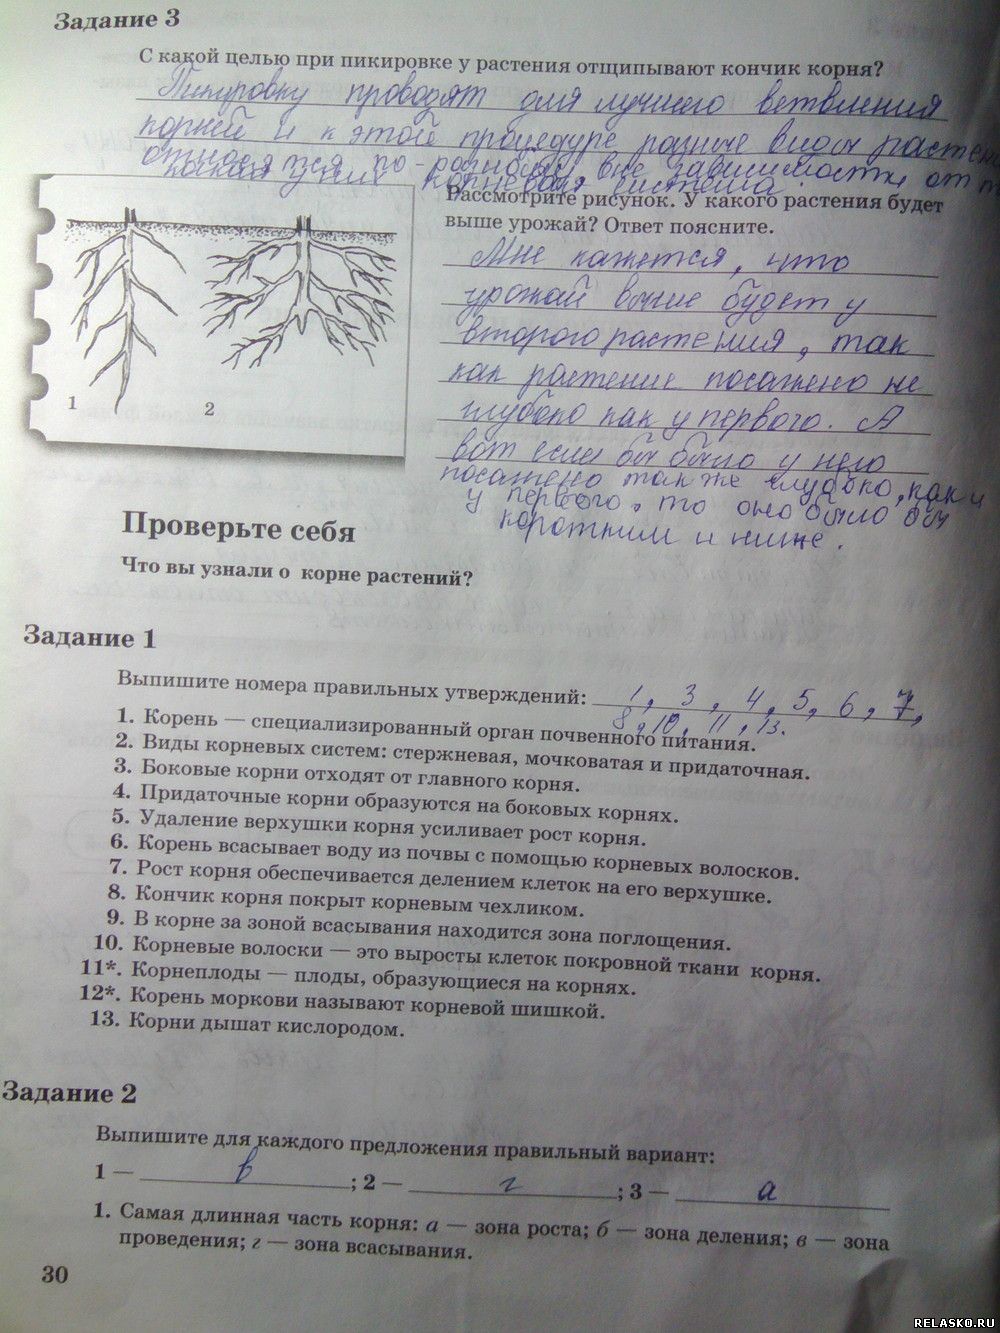 Задание 3
С какой целью при пикировке у растения отщипывают кончик корня?
Пикировку проводят для лучшего ветвления
корней и к этой процедуре разные виды растен
относятся по-разному, вне зависимости от т
какая у них корневая система.
Рассмотрите рисунок. У какого растения будет
выше урожай? Ответ поясните.
Мне кажется, что
урожай выше будет у
второго растения, так
как растение посажено не
глубоко как у первого. А
вот если бы было у него
посажено так же глубоко, как и
у первого, то оно было бы
коротким и ниже.
1
2
Проверьте себя
Что вы узнали о корне растений?
Задание 1
Выпишите номера правильных утверждений: 1, 3, 4, 5, 6, 7,
8, 10, 11, 13.
1. Корень — специализированный орган почвенного питания.
2. Виды корневых систем: стержневая, мочковатая и придаточная.
3. Боковые корни отходят от главного корня.
4. Придаточные корни образуются на боковых корнях.
5. Удаление верхушки корня усиливает рост корня.
6. Корень всасывает воду из почвы с помощью корневых волосков.
7. Рост корня обеспечивается делением клеток на его верхушке.
8. Кончик корня покрыт корневым чехликом.
9. В корне за зоной всасывания находится зона поглощения.
10. Корневые волоски — это выросты клеток покровной ткани корня.
11*. Корнеплоды — плоды, образующиеся на корнях.
12*. Корень моркови называют корневой шишкой.
13. Корни дышат кислородом.
Задание 2
Выпишите для каждого предложения правильный вариант:
1 — в ; 2 — г ; 3 — а
1. Самая длинная часть корня: а — зона роста; б — зона деления; в — зона
проведения; г — зона всасывания.
30
RELASKO.RU